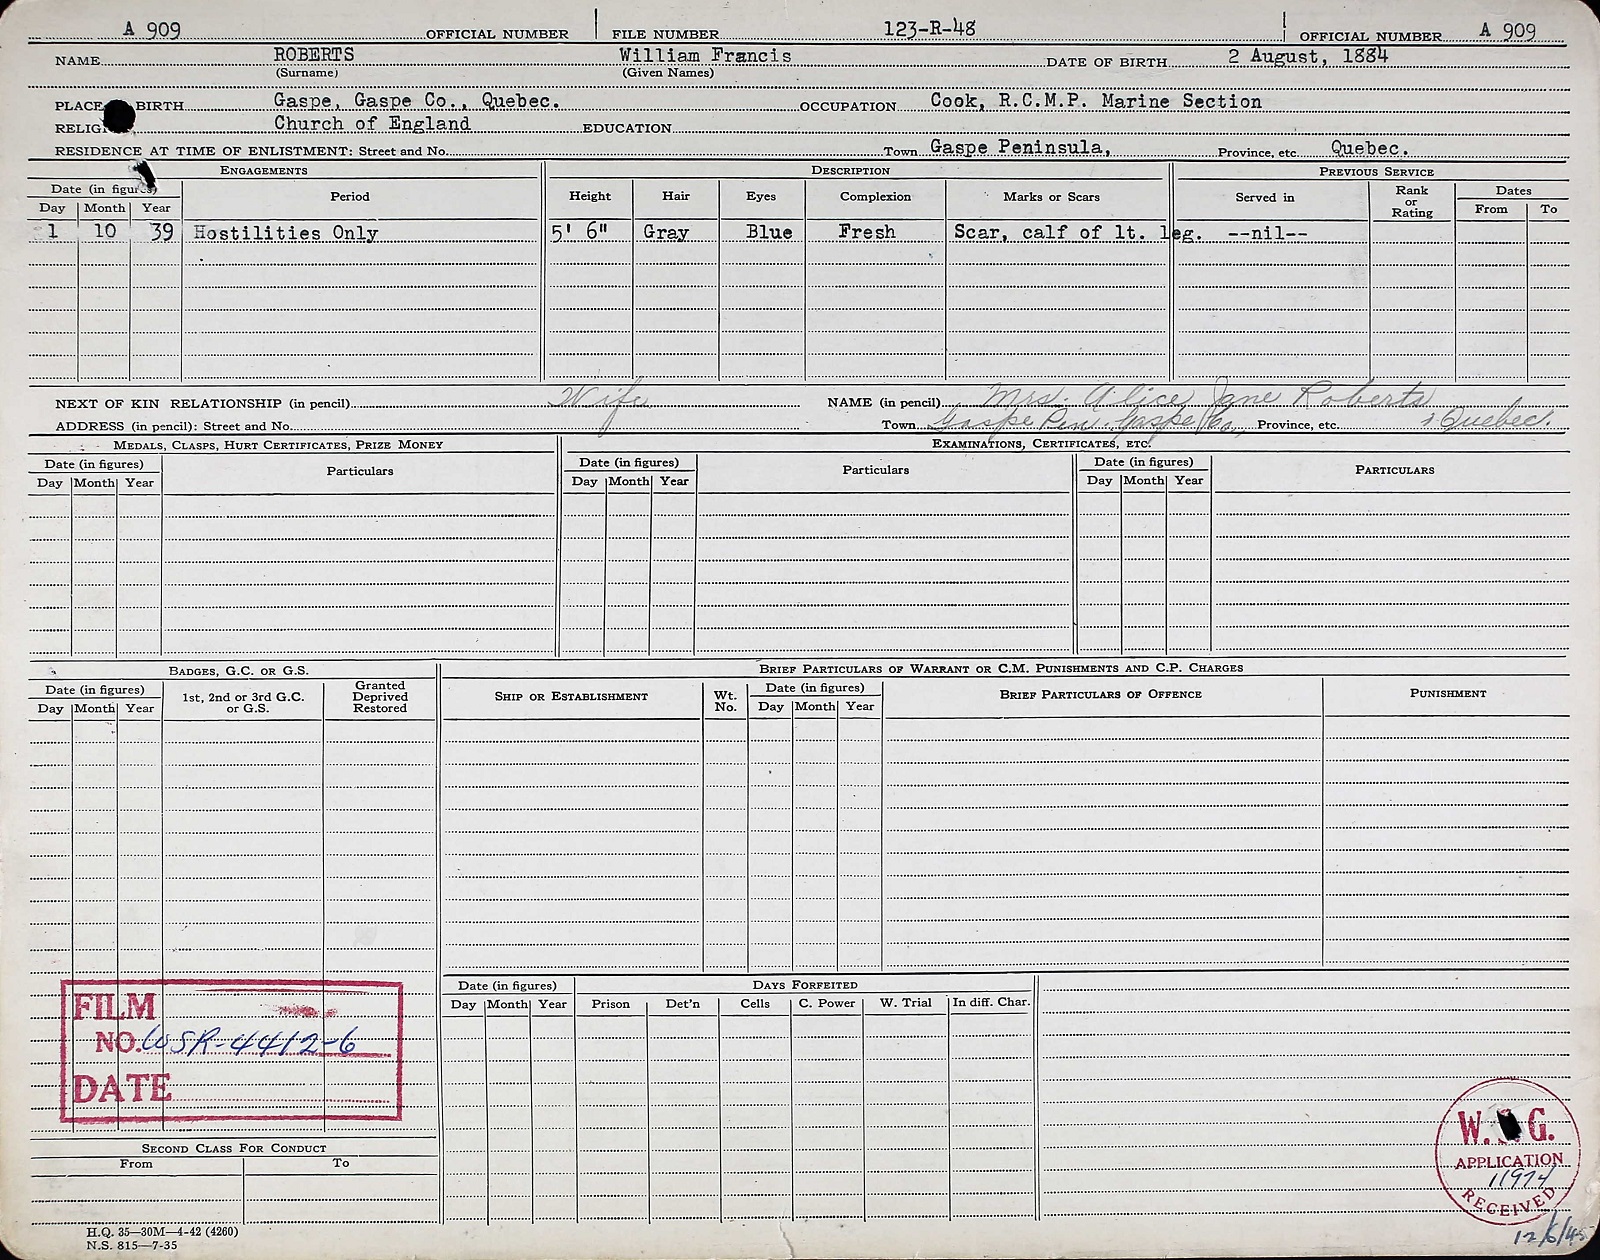 A 909 OFFICIAL NUMBER FILE NUMBER 123-R-48 OFFICIAL NUMBER A 909
NAME ROBERTS William Francis DATE OF BIRTH 2 August, 1884
(Surname) (Given Names)
PLACE BIRTH Gaspe, Gaspe Co., Quebec. OCCUPATION Cook, R.C.M.P. Marine Section
RELIG Church of England EDUCATION
RESIDENCE AT TIME OF ENLISTMENT: Street and No. Town Gaspe Peninsula, Province, etc. Quebec.
ENGAGEMENTS DESCRIPTION PREVIOUS SERVICE
Date (in figures) Period Height Hair Eyes Complexion Marks or Scars Served in Rank or Rating Dates
Day Month Year From To
1 10 39 Hostilities Only 5' 6" Gray Blue Fresh Scar, calf of lt. leg. --nil--
NEXT OF KIN RELATIONSHIP (in pencil) Wife NAME (in pencil) Mrs. Alice Jane Roberts
ADDRESS (in pencil): Street and No. Town Gaspe Pen. Gaspe Co., Province, etc. Quebec.
MEDALS, CLASPS, HURT CERTIFICATES, PRIZE MONEY EXAMINATIONS, CERTIFICATES, ETC.
Date (in figures) Particulars Date (in figures) Particulars Date (in figures) PARTICULARS
Day Month Year Day Month Year Day Month Year
BADGES, G.C. OR G.S. BRIEF PARTICULARS OF WARRANT OR C.M. PUNISHMENTS AND C.P. CHARGES
Date (in figures) 1st, 2nd or 3rd G.C. or G.S. Granted Deprived Restored SHIP OR ESTABLISHMENT Wt. No. Date (in figures) BRIEF PARTICULARS OF OFFENCE PUNISHMENT
Day Month Year Day Month Year
Date (in figures) DAYS FORFEITED
Day Month Year Prison Det'n Cells C. Power W. Trial In diff. Char.
FILM
NO. WSR-4412-6
DATE
SECOND CLASS FOR CONDUCT
From To
W. G.
APPLICATION
11974
RECEIVED
12/6/45
H.Q. 35—30M—4-42 (4260)
N.S. 815—7-35